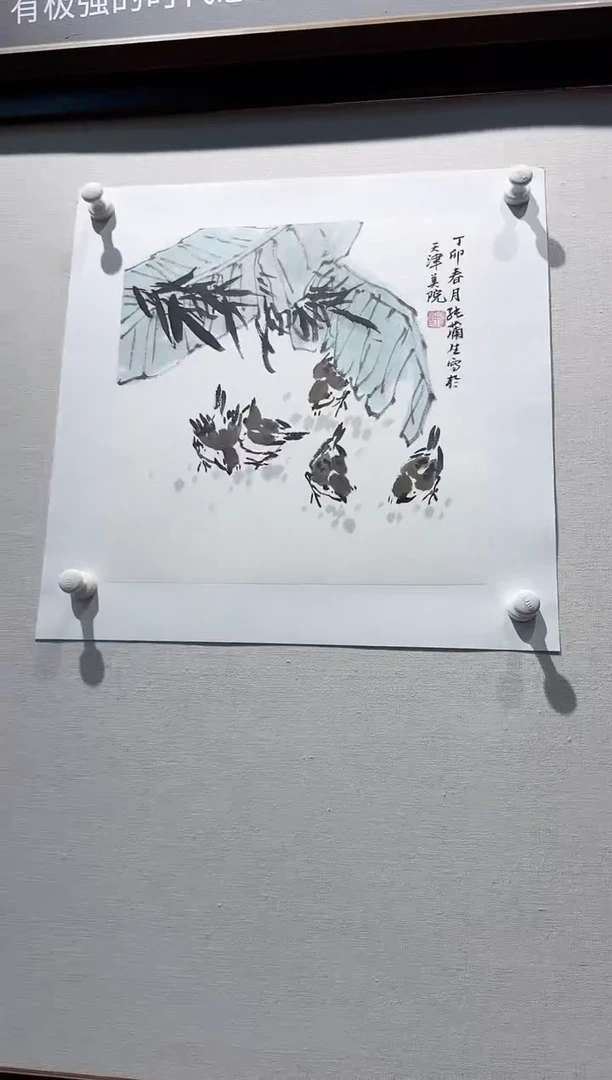 有极强的时代感
丁卯春月張蒲生寫於
天津美院